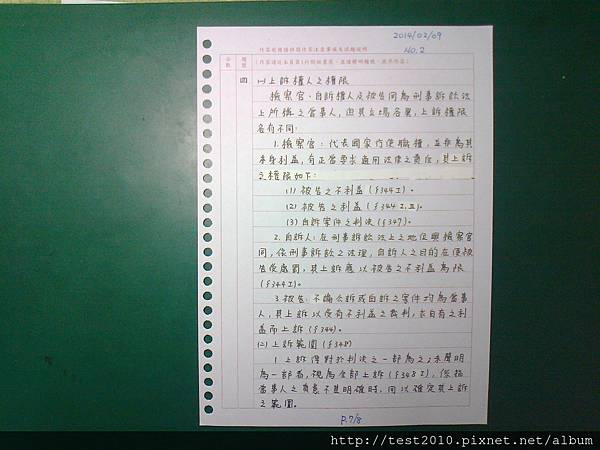 2014/02/09
NO.2
作答前請詳細閱作答注意事項及試題說明
(作答請從本頁第1行開始書寫，並請標明題號，依序作答)
分數
題號
四
(一)上訴權人之權限
檢察官、自訴權人及被告同為刑事訴訟法
上所稱之當事人，但其立場各異，上訴權限
各有不同：
1.檢察官：代表國家行使職權，並非為其
本身利益，有正當要求適用法律之責任，其上訴
之權限如下：
(1) 被告之不利益(§344I)。
(2) 被告之利益(§344I,Ⅲ)。
(3) 自訴案件之判決(§347)。
2.自訴人：在刑事訴訟法上之地位與檢察官
同，依刑事訴訟之法理，自訴人之目的在使被
告受處罰，其上訴應以被告之不利益為限
(§344I)。
3.被告：不論公訴或自訴之案件均為當事
人，其上訴以受有不利益之裁判，求自有之利
益而上訴(§344)。
(二)上訴範圍(§348)
1.上訴得對於判決之一部為之；未聲明
為一部者，視為全部上訴(§348I)，係指
當事人之真意不甚明確時，用以確定其上訴
之範圍。
P.7/8
http://test2010.pixnet.net/album